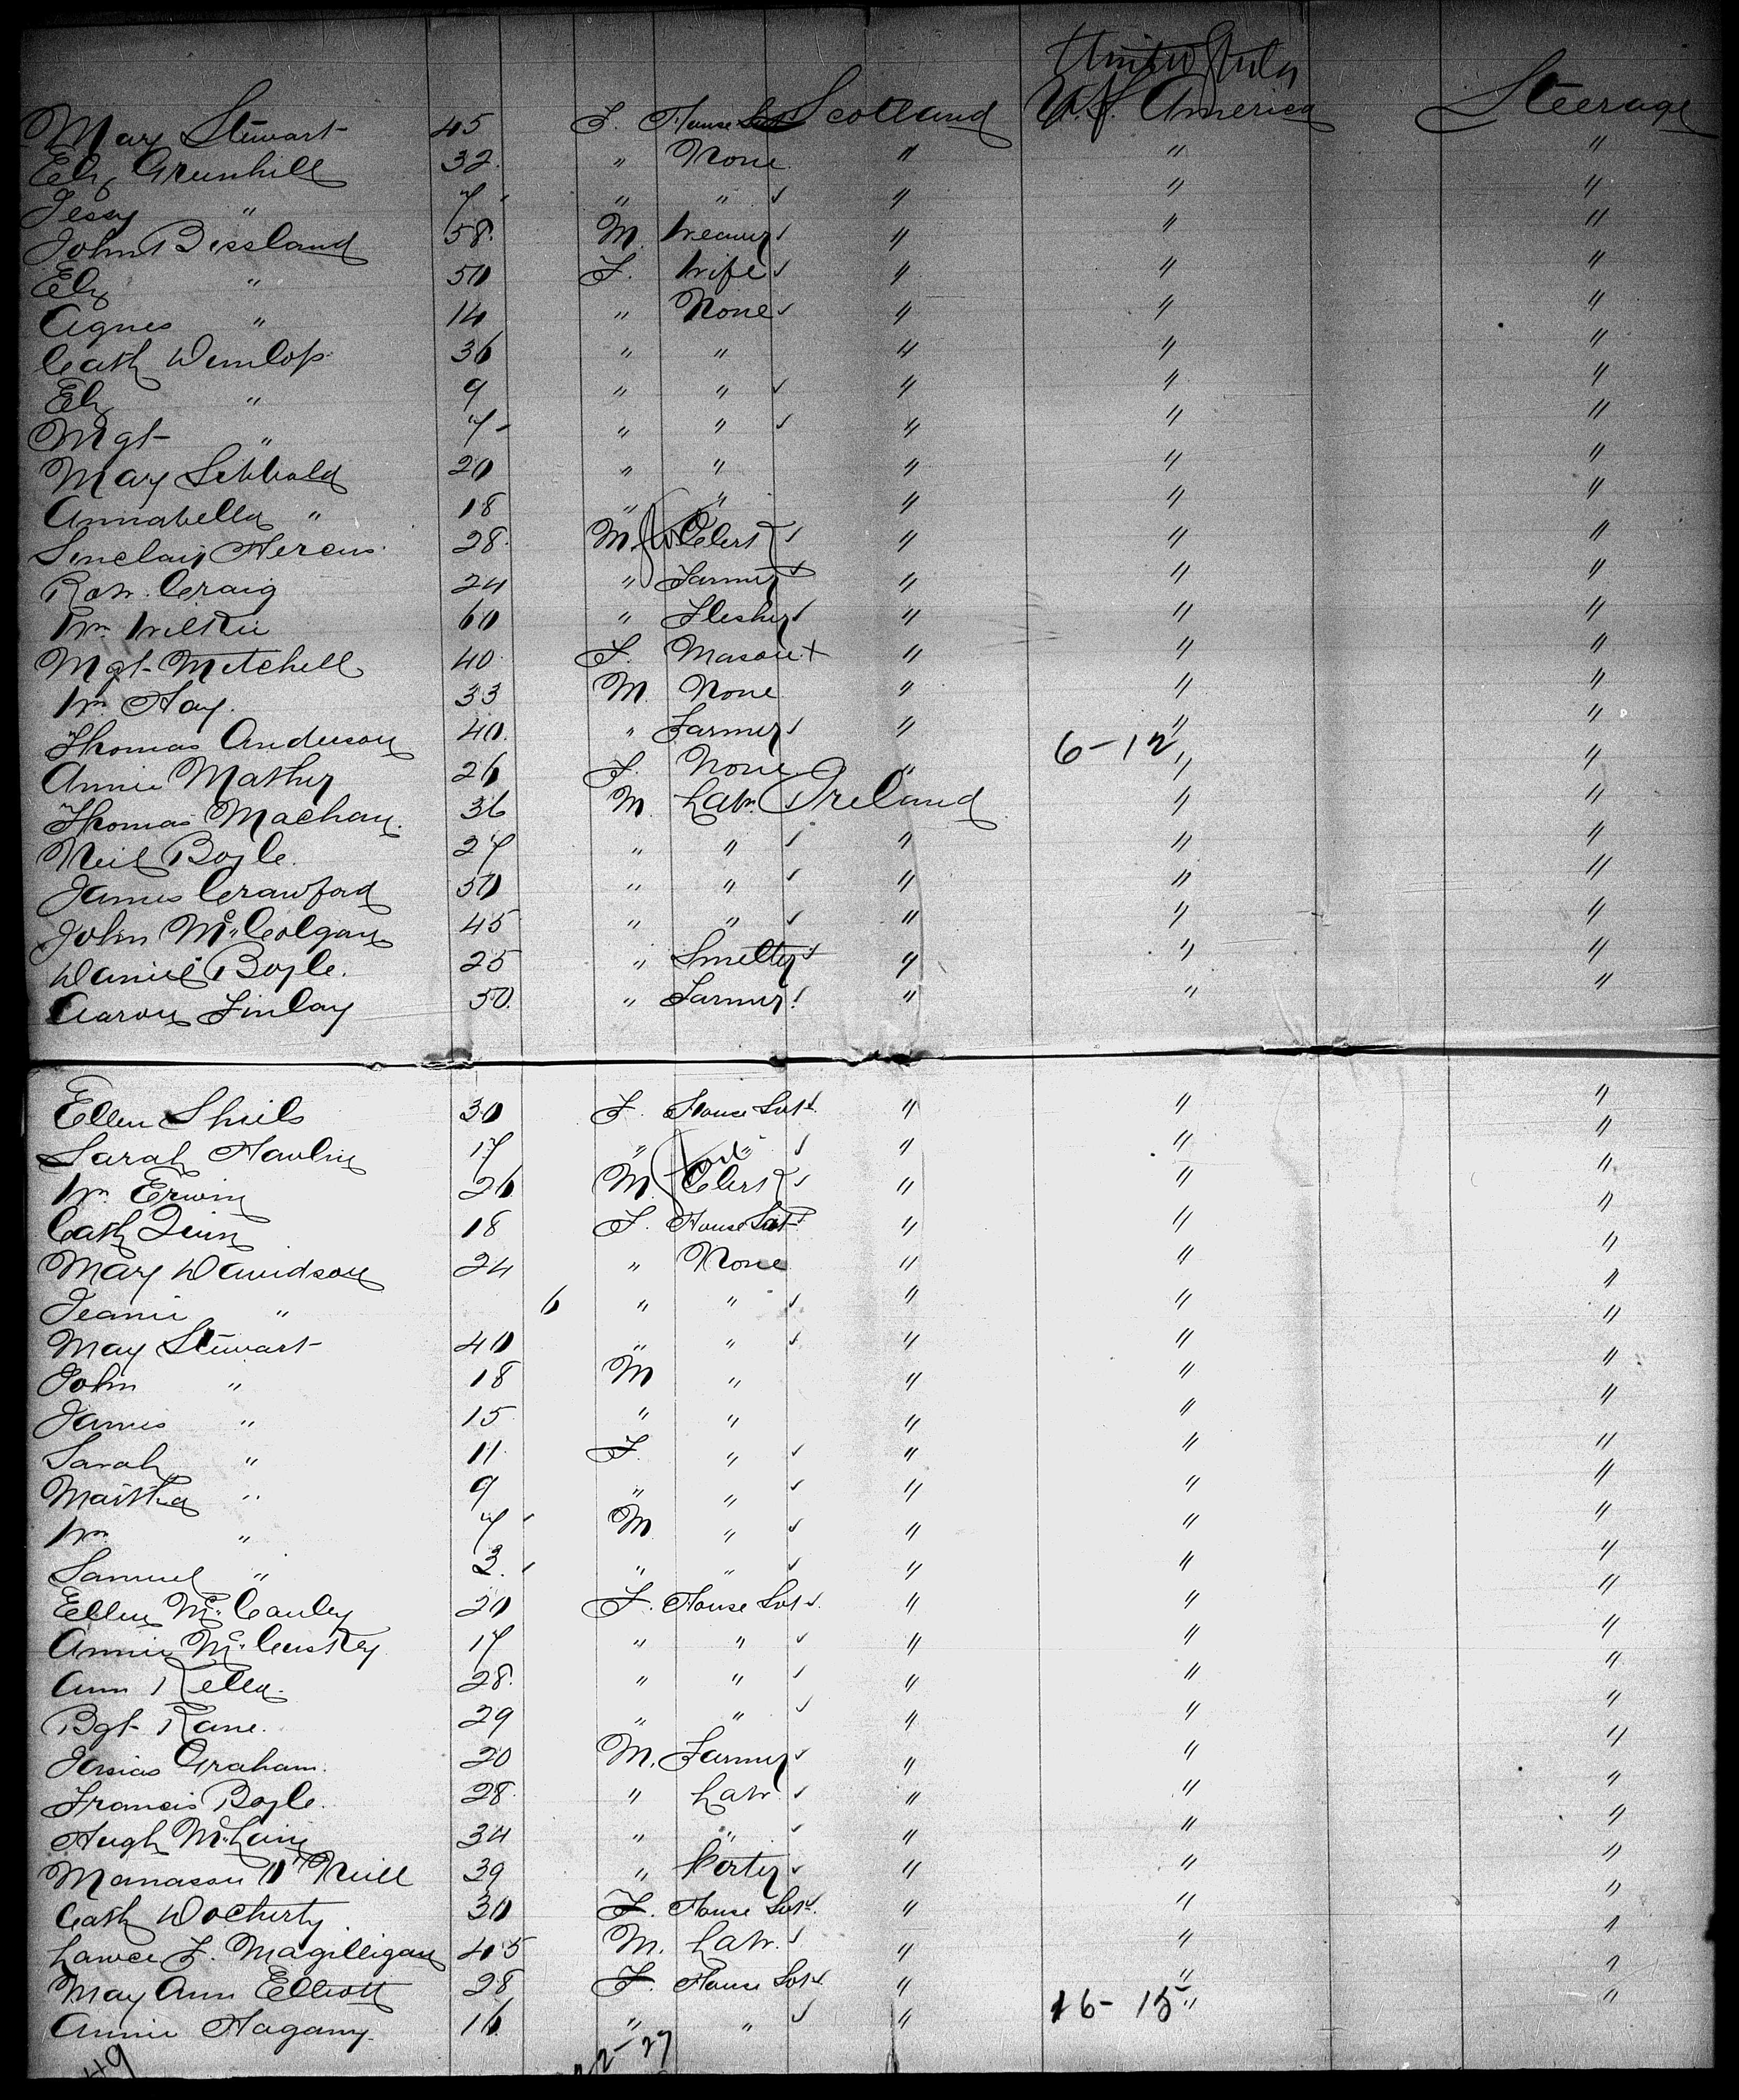 United States
Mary Stewart 45 F. House Svt Scotland U.S. America Steerage
Eliz Greenhill 32 " None " " "
Jessy " 7 " " " " "
John Bissland 58 M. Weaver " " "
Eliz " 50 F. Wife " " "
Agnes " 14 " None " " "
Cath Dunlop 36 " " " " "
Eliz " 9 " " " " "
Mgt " 7 " " " " "
Mary Sibbald 20 " " " " "
Annabella " 18 " " " " "
Sinclair Hercus 28 M. Clerk " " "
Rob. Craig 24 " Farmer " " "
Wm Wilkie 60 " Flesher " " "
Mgt Mitchell 40 F. Mason " " "
Wm Hay 33 M. None " " "
Thomas Anderson 40 " Farmer " " "
6-12
Annie Mather 26 F. None " " "
Thomas Machan 36 M. Labr. Ireland " "
Neil Boyle 27 " " " " "
James Crawford 50 " " " " "
John McColgan 45 " " " " "
Daniel Boyle. 25 " Smelter " " "
Aaron Finlay 50 " Farmer " " "
Ellen Shiels 30 F. House Svt " " "
Sarah 17 " " " " "
Wm Erwin 26 M. Clerk " " "
Cath Quinn 18 F. House Svt " " "
Mary Davidson 24 " None " " "
Jeanie " 6 " " " " "
May Stewart 40 " " " " "
John " 18 M " " " "
James " 15 " " " " "
Sarah " 11 F. " " " "
Martha " 9 " " " " "
Wm " 7 M " " " "
Samuel " 3. " " " " "
Ellen McCauley 20 F. House Svt " " "
Annie McCuskey 17 " " " " "
Ann Kella 28. " " " " "
Bgt Kane. 29 " " " " "
Josias Graham. 20 M. Farmer " " "
Francis Boyle 28. " Labr " " "
Hugh 34 " " " " "
Manassu O'Neill 39 " Porter " " "
Cath Docherty 30 F. House Svt. " " "
Lawce F. Magilligan 45 M. Labr. " " "
May Ann Elliott 28 F. House Svt " " "
16-15
Annie Hagany. 16 " " " " "
49 22-27